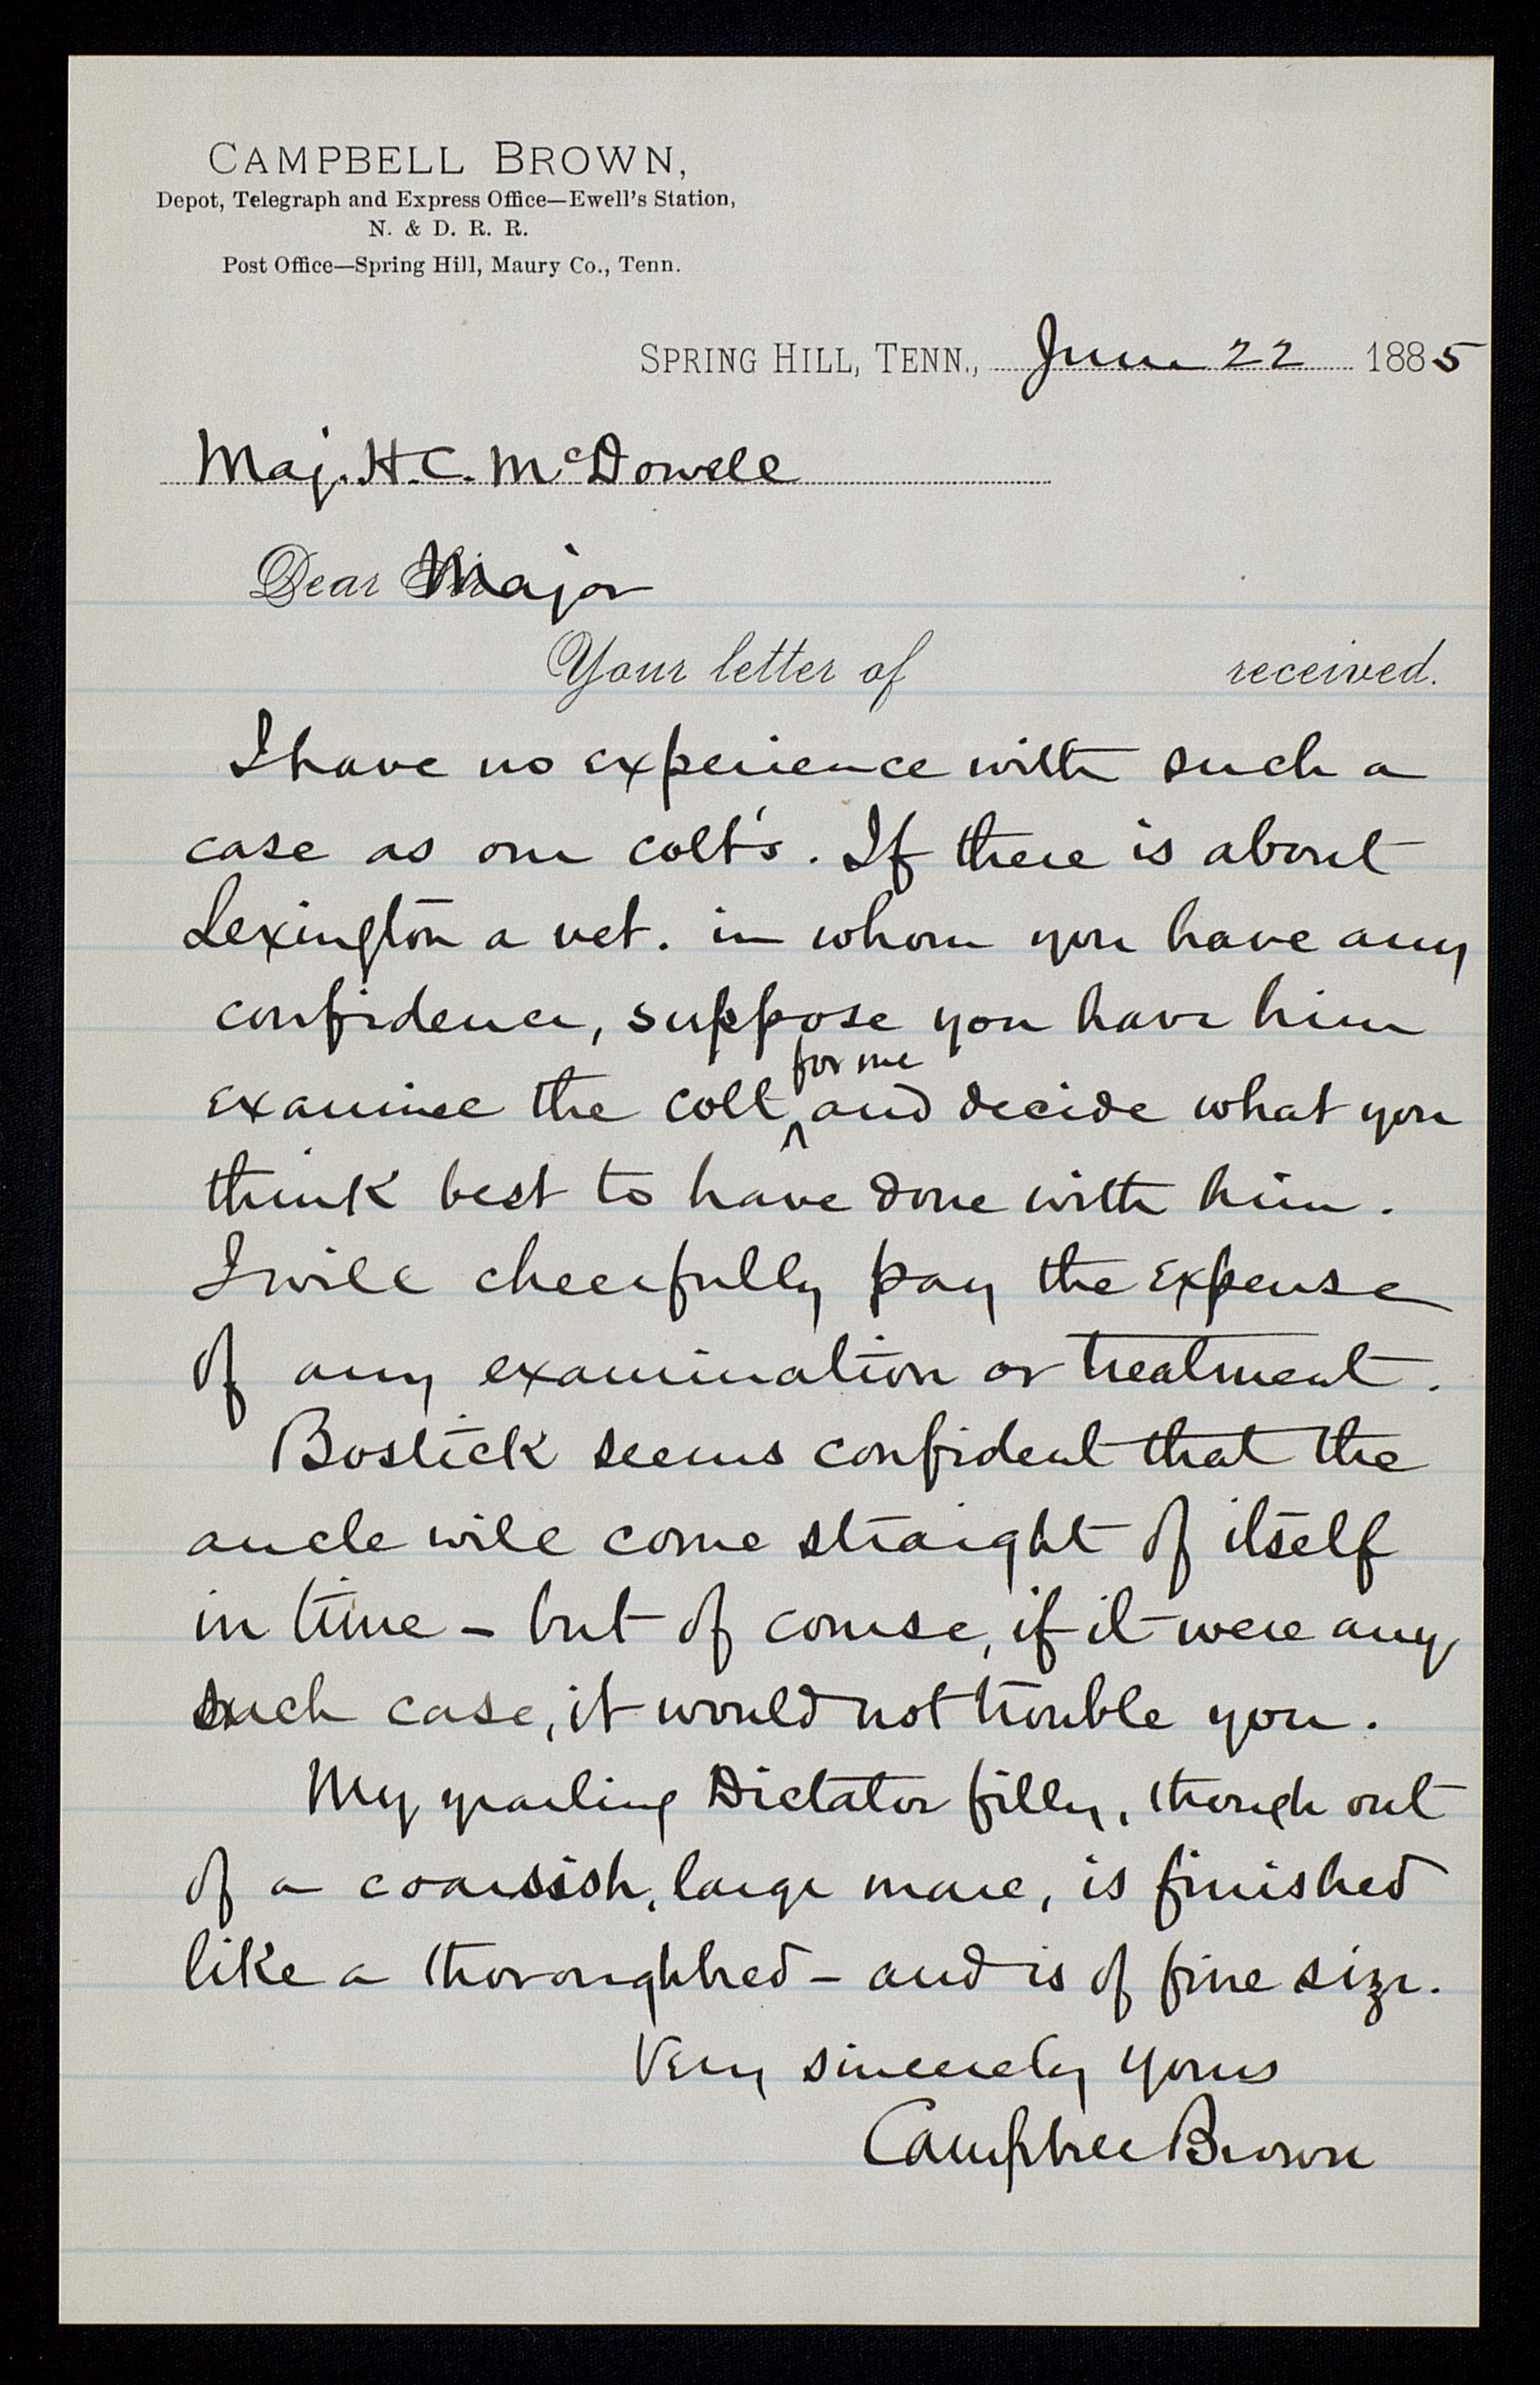 CAMPBELL BROWN,
Depot, Telegraph and Express Office—Ewell's Station,
N. & D. R. R.
Post Office—Spring Hill, Maury Co., Tenn.
SPRING HILL, TENN., June 22 1885
Maj. H. C. McDowell
Dear Major
Your letter of received.
I have no experience with such a
case as our colt's. If there is about
Lexington a vet. in whom you have any
confidence, suppose you have him
for me
examine the colt ^ and decide what you
think best to have done with him.
I will cheerfully pay the expense
of any examination or treatment.
Bostick seems confident that the
ancle will come straight of itself
in time – but of course, if it were any
such case, it would not trouble you.
My yearling Dictator filly, though out
of a coarsish, large mare, is finished
like a thoroughbred – and is of fine size.
Very sincerely yours
Campbell Brown